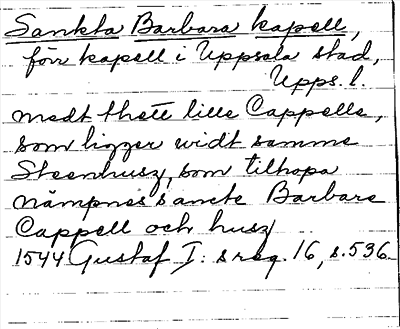 Sankta Barbara kapell,
förr kapell i Uppsala stad,
Upps. l.
medt thett lille Cappelle,
som ligger widt samme
Steenhusz, som tilhopa
nämpnes sancte Barbare
Cappell och husz
1544 Gustaf I:s reg. 16, s. 536.